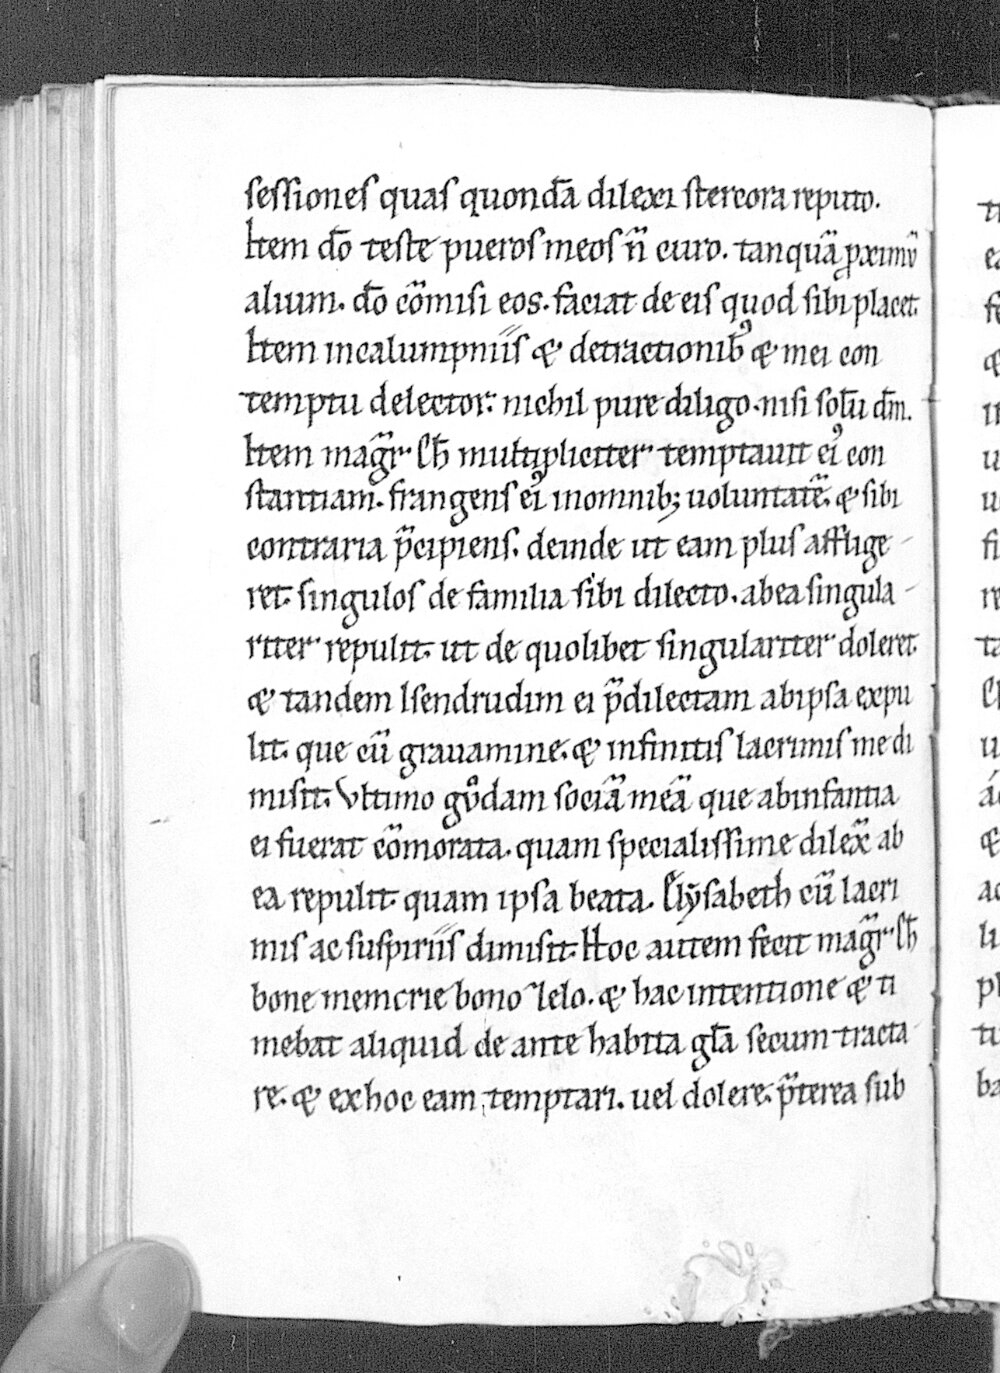 sessiones quas quondā dilexi stercora reputo.
Item dō teste pueros meos ñ curo. tanquā p̱ximū
alium. dō cōmisi eos. faciat de eis quod sibi placet.
Item incalumpniis & detractionib᷒ & mei con
temptu delector. nichil pure diligo. nisi solū dm̄.
Item magr̄ Ch̄ multipliciter temptauit ei᷒ con
stantiam. frangens ei᷒ inomnib; uoluntatē. & sibi
contraria p̄cipiens. deinde ut eam plus afflige
ret. singulos de familia sibi dilecto. abea singula
riter repulit. ut de quolibet singulariter doleret.
& tandem Isendrudim ei p̄dilectam abipsa expu
lit. que cū grauamine. & infinitis lacrimis me di
misit. Vltimo gͦdam sociā meā que abinfantia
ei fuerat cōmorata. quam specialissime dilex̄ ab
ea repulit. quam ipsa beata. Elẏsabeth cū lacri
mis ac suspiriis dimisit. Hoc autem fecit magr̄ Ch̄
bone memorie bono zelo. & hac intentione & ti
mebat aliquid de ante habita gl̄a secum tracta
re. & exhoc eam temptari. uel dolere. p̄terea sub